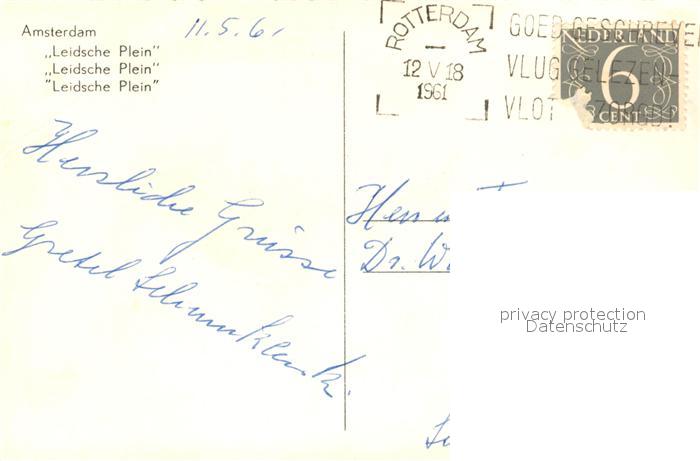 Amsterdam
„Leidsche Plein"
„Leidsche Plein"
"Leidsche Plein"
11.5.61
ROTTERDAM
12 V 18
1961
GOED GESCHREVE
VLUG GELEZEN-
VLOT
NEDERLAND
6
CENT
Herzliche Grüsse
Gretel
Herrn u.
Dr. W
privacy protection
Datenschutz